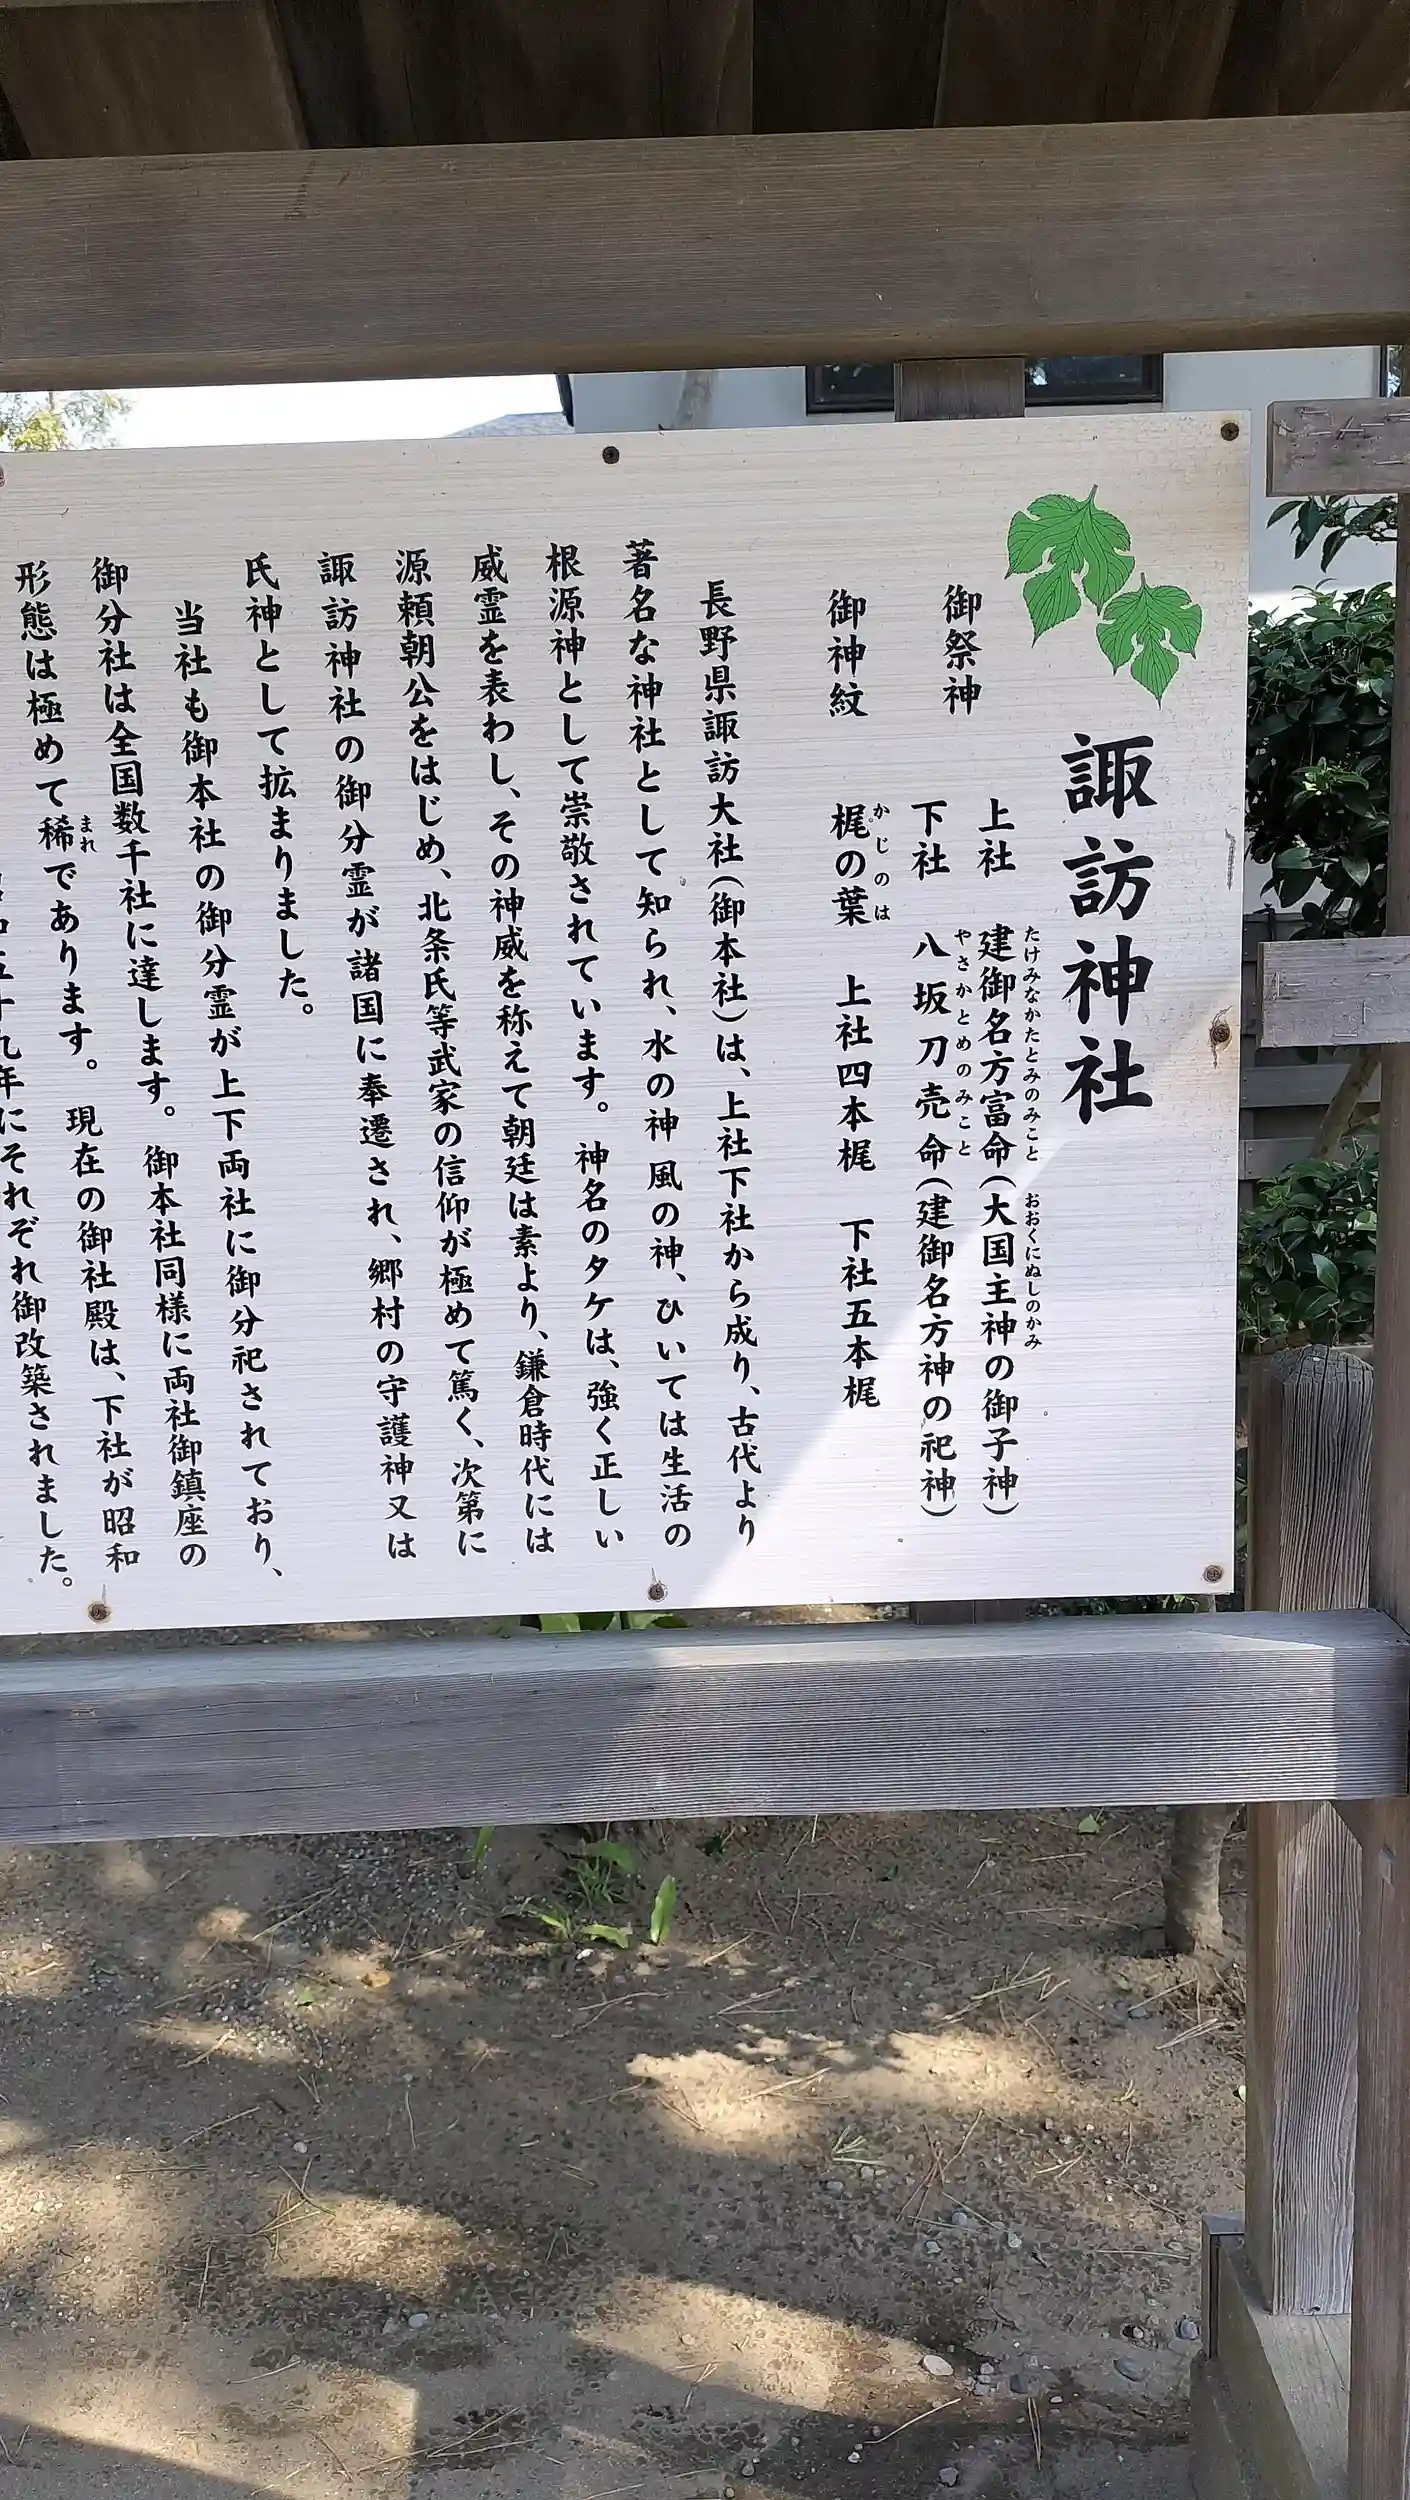 諏訪神社
御祭神 上社 建御名方富命(大国主神の御子神)
たけみなかたとみのみこと おおくにぬしのかみ
下社 八坂刀売命(建御名方神の祀神)
やさかとめのみこと
御神紋 梶の葉 上社四本梶 下社五本梶
かじのは
長野県諏訪大社(御本社)は、上社下社から成り、古代より
著名な神社として知られ、水の神 風の神、ひいては生活の
根源神として崇敬されています。神名のタケは、強く正しい
威霊を表わし、その神威を称えて朝廷は素より、鎌倉時代には
源頼朝公をはじめ、北条氏等武家の信仰が極めて篤く、次第に
諏訪神社の御分霊が諸国に奉遷され、郷村の守護神又は
氏神として拡まりました。
当社も御本社の御分霊が上下両社に御分祀されており、
御分社は全国数千社に達します。御本社同様に両社御鎮座の
形態は極めて稀であります。現在の御社殿は、下社が昭和
まれ
五十九年にそれぞれ御改築されました。